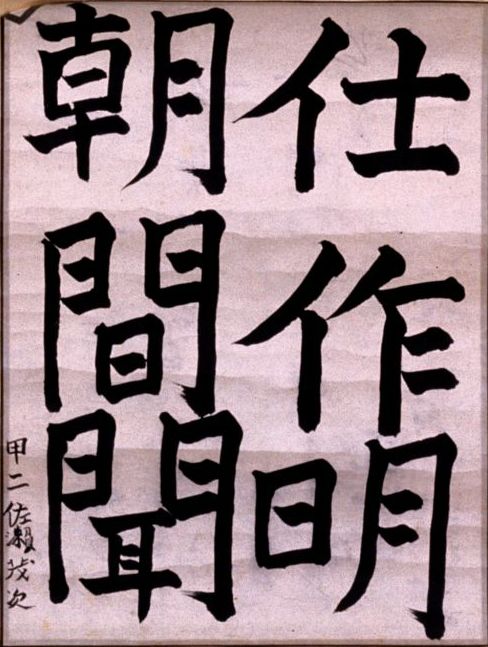 仕作明
朝間聞
甲二 佐瀬茂次